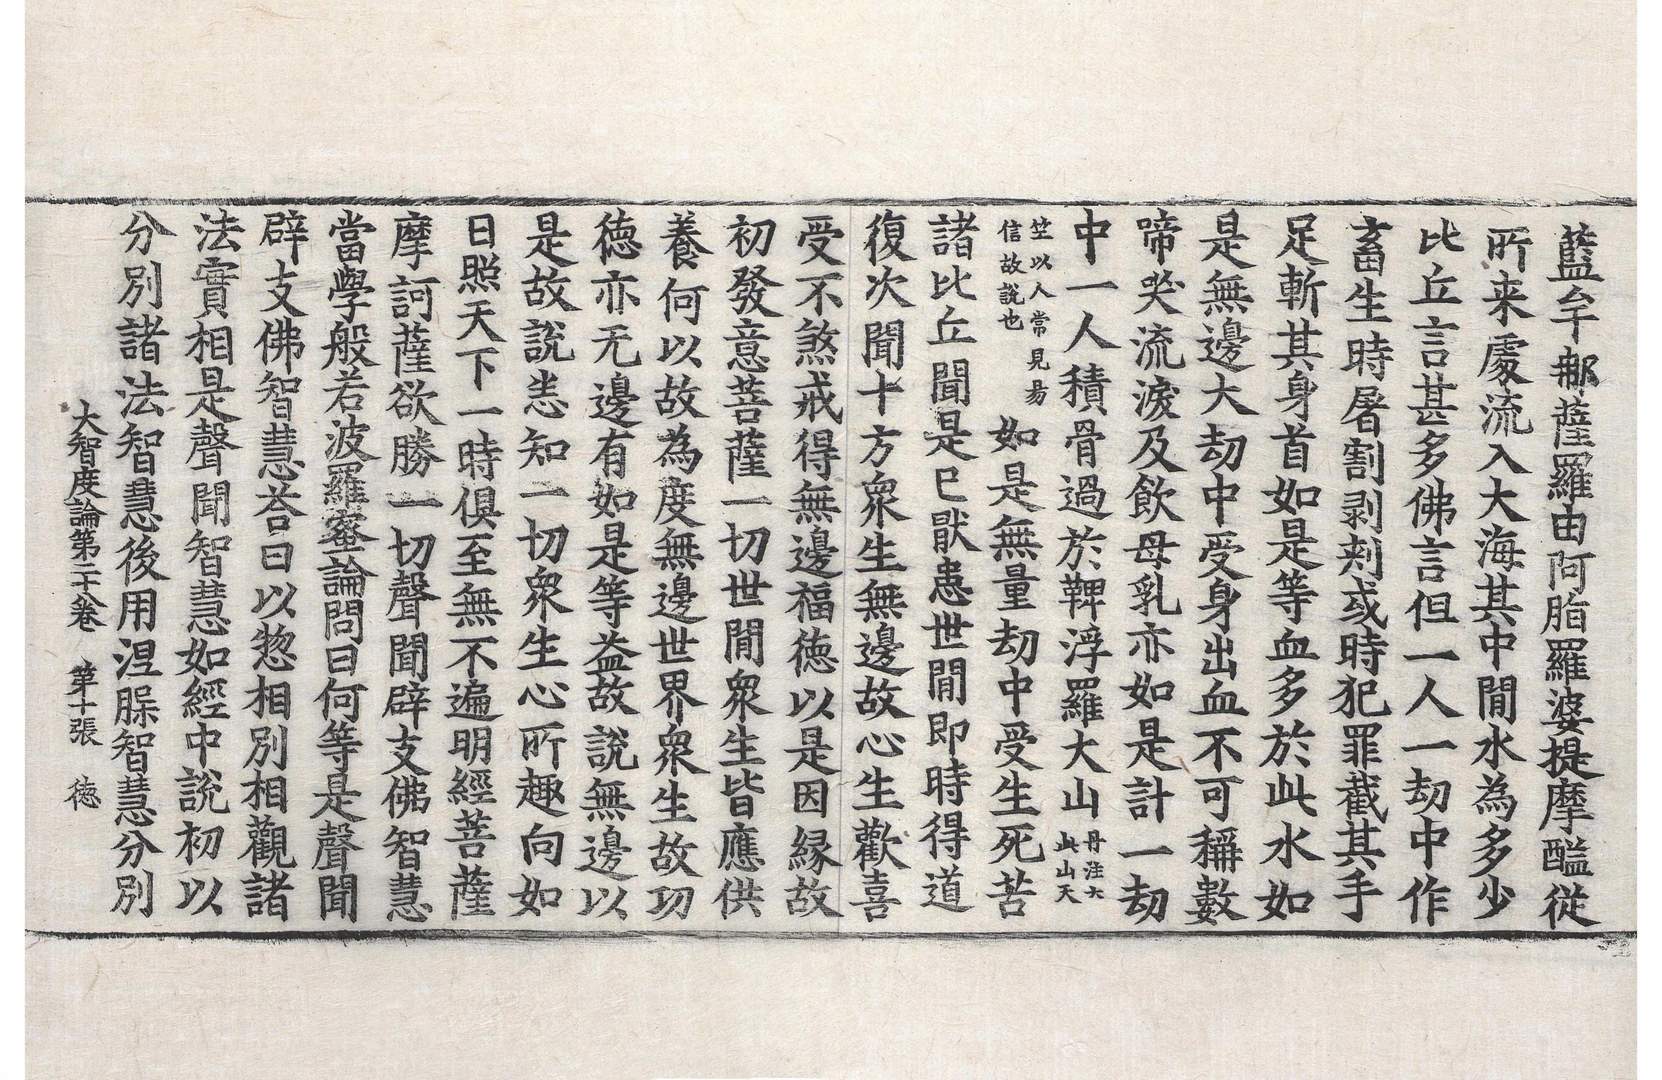 藍牟郍薩羅由阿脂羅婆提摩醯從
所来處流入大海其中閒水為多少
比丘言甚多佛言但一人一劫中作
畜生時屠割剥刾或時犯罪截其手
足斬其身首如是等血多於此水如
是無邊大劫中受身出血不可稱數
啼哭流淚及飲母乳亦如是計一劫
中一人積骨過於鞞浮羅大山丹注云此山天
竺以人常見易信故說也如是無量劫中受生死苦
諸比丘聞是已猒患世閒即時得道
復次聞十方衆生無邊故心生歡喜
受不煞戒得無邊福徳以是因緣故
初發意菩薩一切世閒衆生皆應供
養何以故為度無邊世界衆生故功
徳亦无邊有如是等益故說無邊以
是故說恚知一切衆生心所趣向如
日照天下一時俱至無不遍明經菩薩
摩訶薩欲勝一切聲聞辟支佛智慧
當學般若波羅蜜論問曰何等是聲聞
辟支佛智慧荅曰以惣相別相觀諸
法實相是聲聞智慧如經中說初以
分別諸法智慧後用涅槃智慧分別
大智度論第二十八卷 第十張 徳